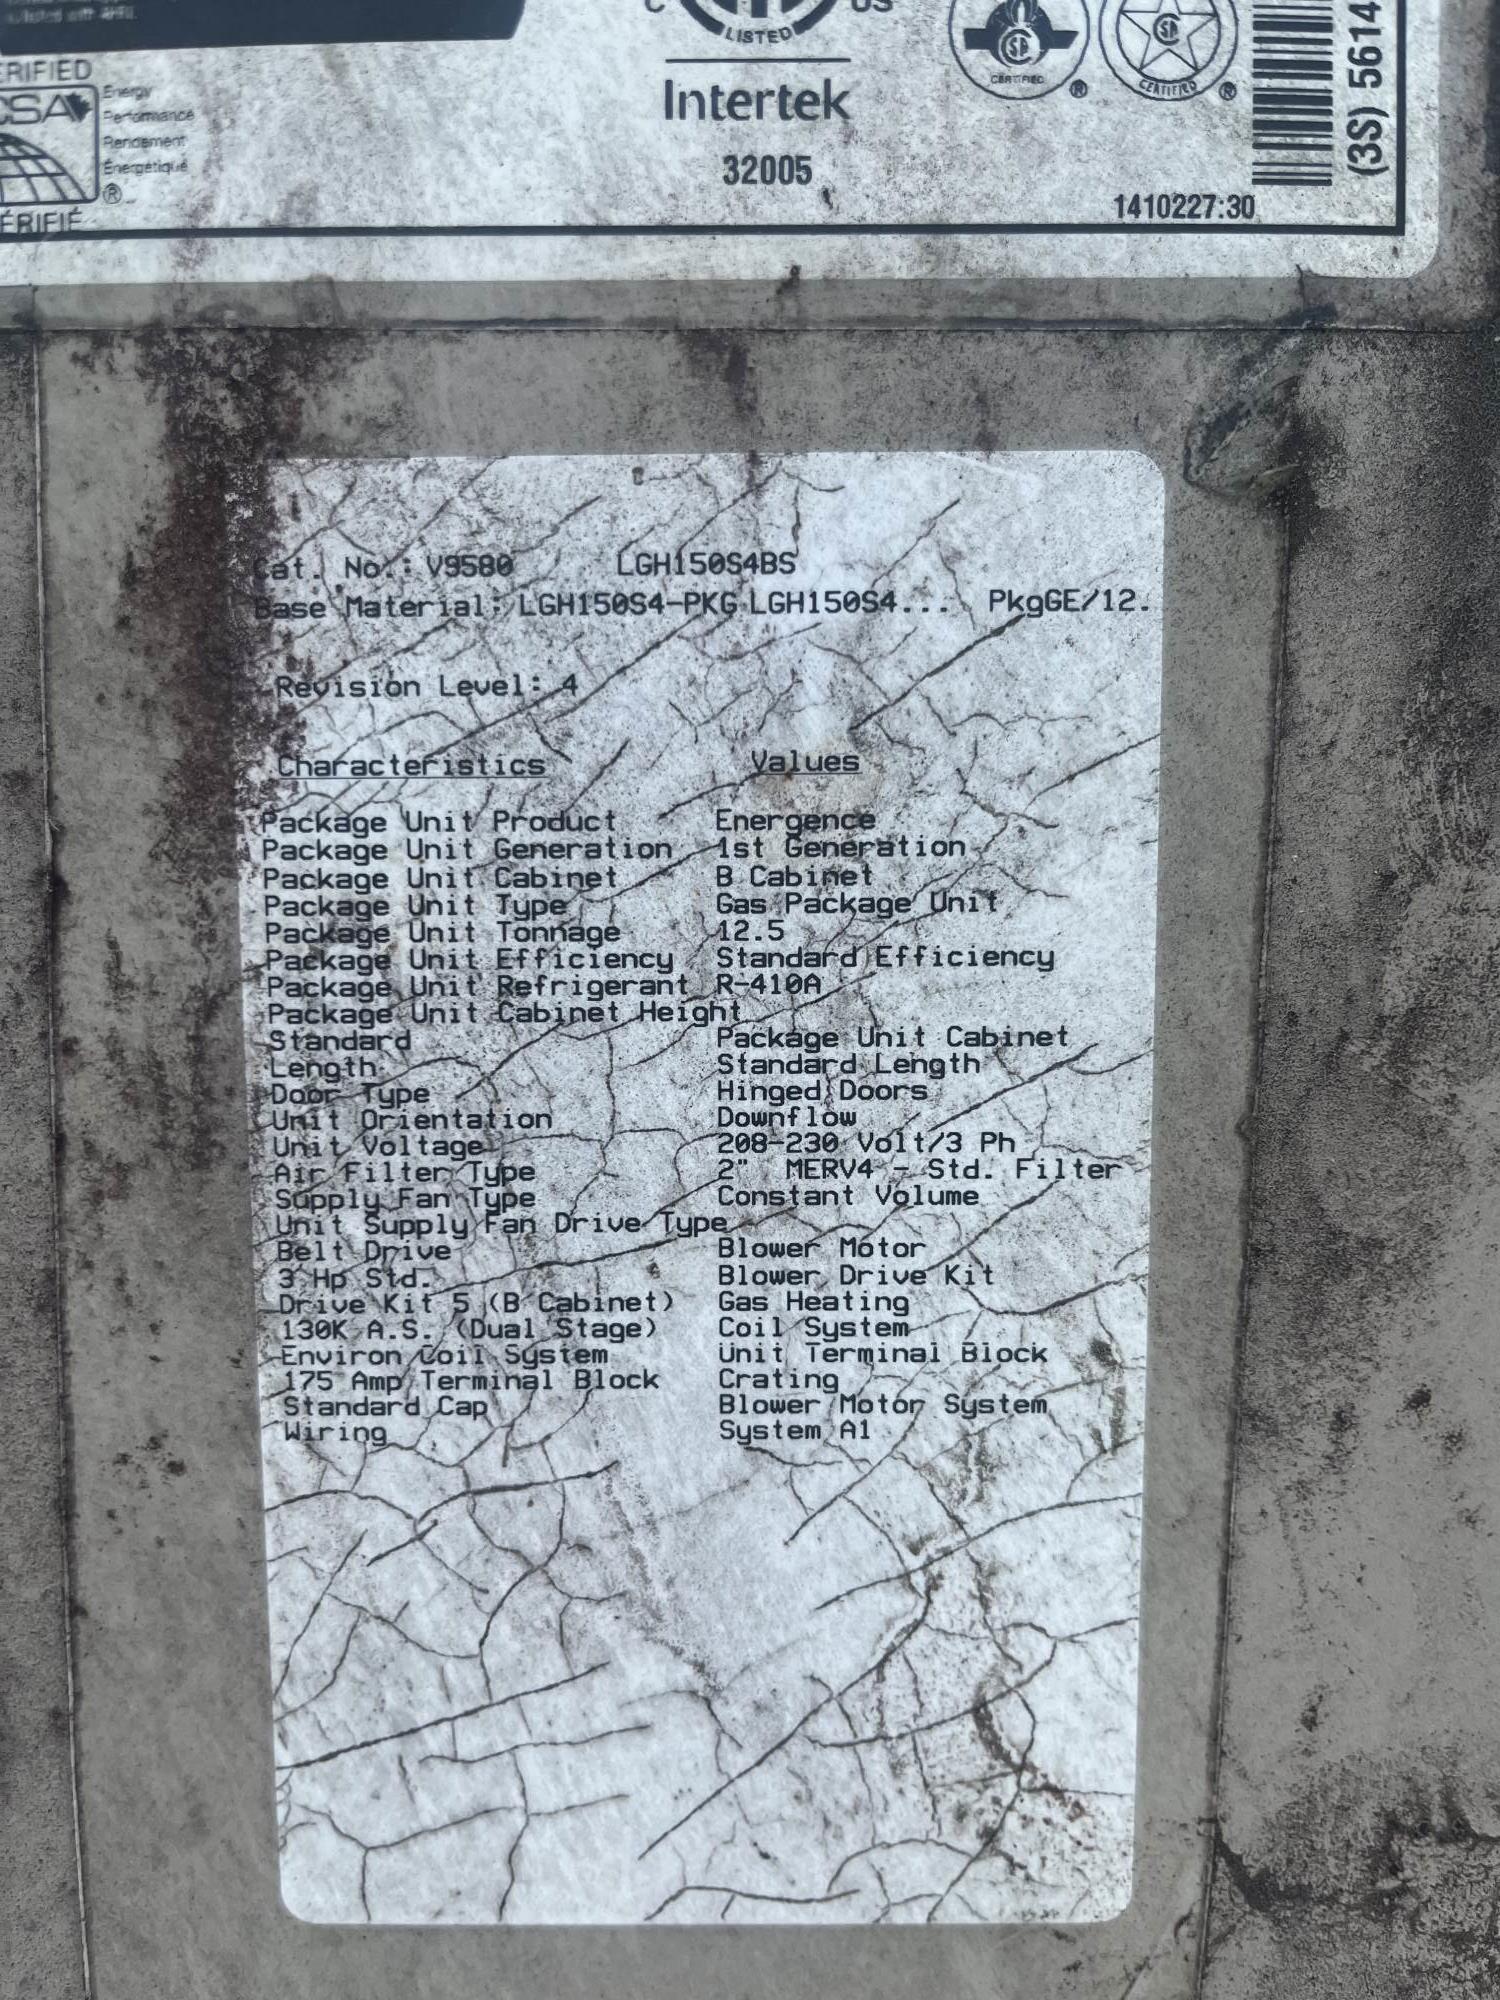 ERIFIED
CSA
Energy
Performance
Rendement
Énergétique
®
ÉRIFIÉ
C US
LISTED
Intertek
32005
CERTIFIED ®
CERTIFIED ®
(3S) 5614
1410227:30
Cat. No.: V9580 LGH150S4BS
Base Material: LGH150S4-PKG LGH150S4... PkgGE/12.
Revision Level: 4
Characteristics Values
Package Unit Product Energence
Package Unit Generation 1st Generation
Package Unit Cabinet B Cabinet
Package Unit Type Gas Package Unit
Package Unit Tonnage 12.5
Package Unit Efficiency Standard Efficiency
Package Unit Refrigerant R-410A
Package Unit Cabinet Height
Standard Package Unit Cabinet
Length Standard Length
Door Type Hinged Doors
Unit Orientation Downflow
Unit Voltage 208-230 Volt/3 Ph
Air Filter Type 2" MERV4 - Std. Filter
Supply Fan Type Constant Volume
Unit Supply Fan Drive Type
Belt Drive Blower Motor
3 Hp Std. Blower Drive Kit
Drive Kit 5 (B Cabinet) Gas Heating
130K A.S. (Dual Stage) Coil System
Environ Coil System Unit Terminal Block
175 Amp Terminal Block Crating
Standard Cap Blower Motor System
Wiring System A1